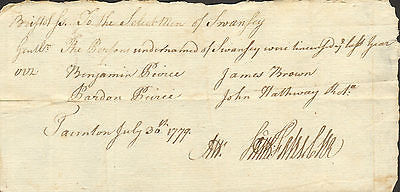 Bristol ss. To the Selectmen of Swansey
Gentln. The Persons undernamed of Swansey were licensed ye last Year
viz
Benjamin Peirce James Brown
Pardon Peirce John Hathway
Taunton July 30th. 1779.
Att.